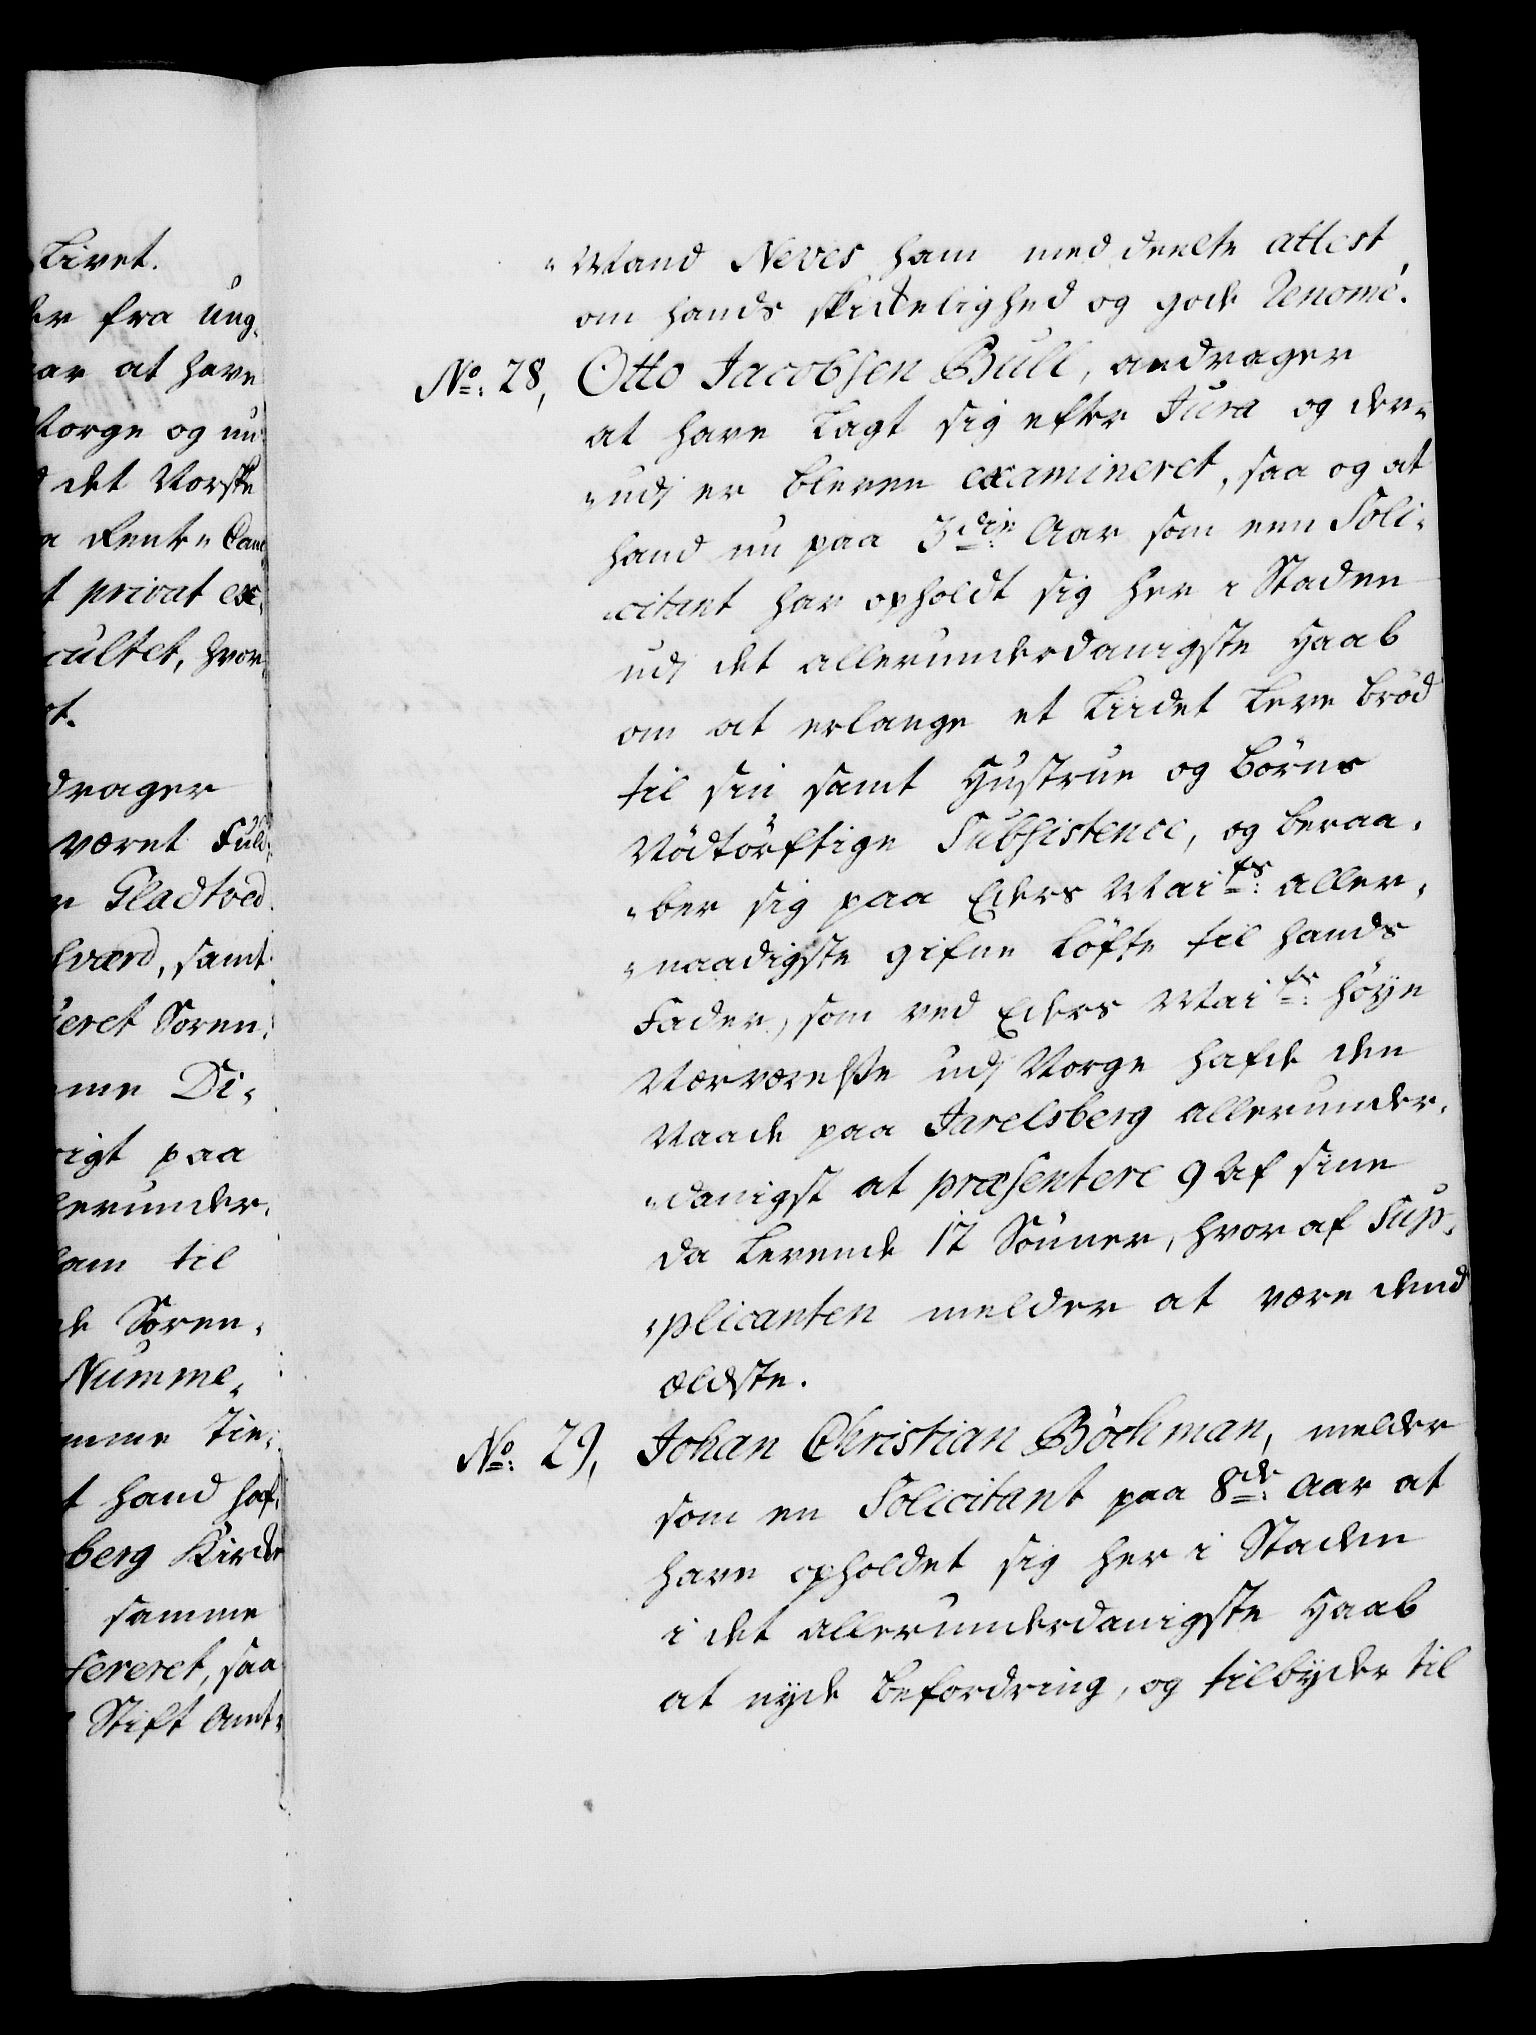 Livet.
er fra Ung„
ar at have
Norge og nu
det Norske
Rente„Cam
t privat ex„
cultet, hvor„
t.
drager
været Fuld„
n Gladtved
lværd, samt
eret Soren„
me Di„
rigt paa
lerunder„
am til
de Soren„
Numme„
mme Tie„
t hand haf„
berg Kirke
samme
fereret, saa
Stift Amt„
„Mand Neves ham meddeelte attest
om hands skikkelighed og gode Renomé.
No: 28, Otto Jacobsen Bull, andrager
at have Lagt sig efter Jura og der„
„udj er bleven examineret, saa og at
hand nu paa 3die: Aar som een Soli„
„citant har opholdt sig her i Staden
udj det allerunderdanigste Haab
om at erlange et Lidet Leve brød
til sin samt Hustrue og børns
Nødtørftige Subsistence, og beraa„
„ber sig paa Eders Maits: aller„
„naadigste gifne Løfte til hands
Fader, som ved Eders Maits: høye
Nærværelsse udj Norge hafde den
Naade paa Jarelsberg allerunder„
„danigst at præsentere 9 Af sine
da Levende 12 Sønner, hvoraf Sup„
„plicanten melder at være dend
ældste.
No: 29, Johan Christian Böckman, melder
som en Solicitant paa 8de: Aar at
have opholdet sig her i Staden
i det allerunderdanigste Haab
at nyde befordring, og tilbyder til